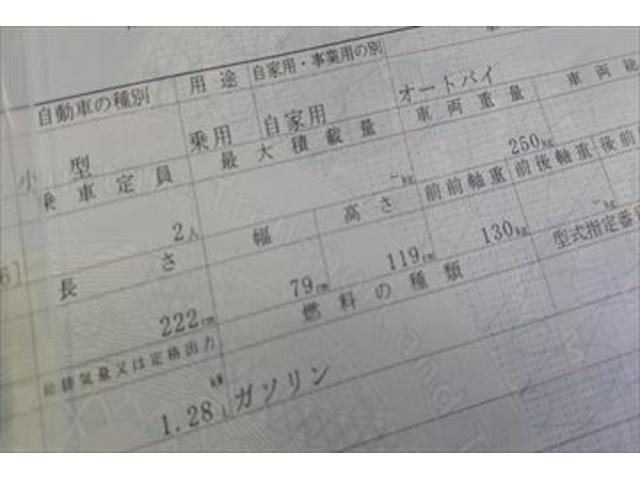 自動車の種別 用途 自家用・事業用の別
小型 乗用 自家用 オートバイ
乗車定員 最大積載量 車両重量 車両総
2人 -kg 250kg
長さ 幅 高さ 前前軸重 前後軸重 後前
222cm 79cm 119cm 130kg -kg
総排気量又は定格出力 燃料の種類 型式指定番
1.28 kW L ガソリン
6]